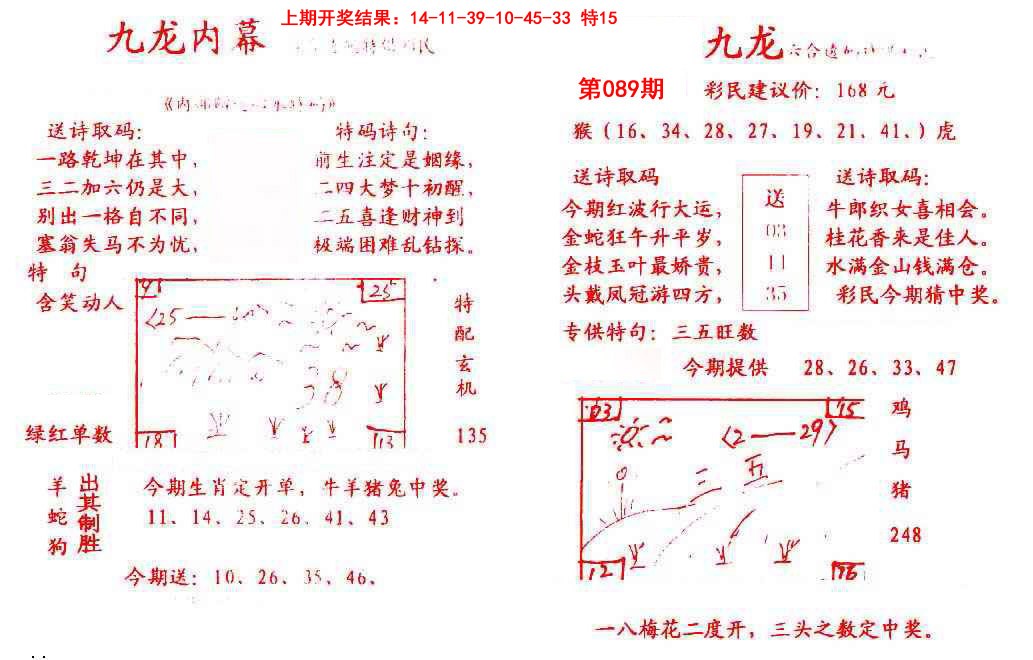 上期开奖结果：14-11-39-10-45-33 特15
九龙内幕
送诗取码：
一路乾坤在其中，
三二加六仍是大，
别出一格自不同，
塞翁失马不为忧，
特码诗句：
前生注定是姻缘，
二四大梦十初醒，
二五喜逢财神到
极端困难乱钻探。
特 句
含笑动人
绿红单数
25
25
38
18
113
特
配
玄
机
135
羊
蛇
狗
出其制胜
今期生肖定开单，牛羊猪兔中奖。
11、14、25、26、41、43
今期送：10、26、35、46、
九龙
第089期
彩民建议价：168元
猴（16、34、28、27、19、21、41、）虎
送诗取码
今期红波行大运，
金蛇狂午升平岁，
金枝玉叶最娇贵，
头戴凤冠游四方，
送
03
11
35
送诗取码：
牛郎织女喜相会。
桂花香来是佳人。
水满金山钱满仓。
彩民今期猜中奖。
专供特句：三五旺数
今期提供 28、26、33、47
03
15
〈2——29〉
三五
12
76
鸡
马
猪
248
一八梅花二度开，三头之数定中奖。